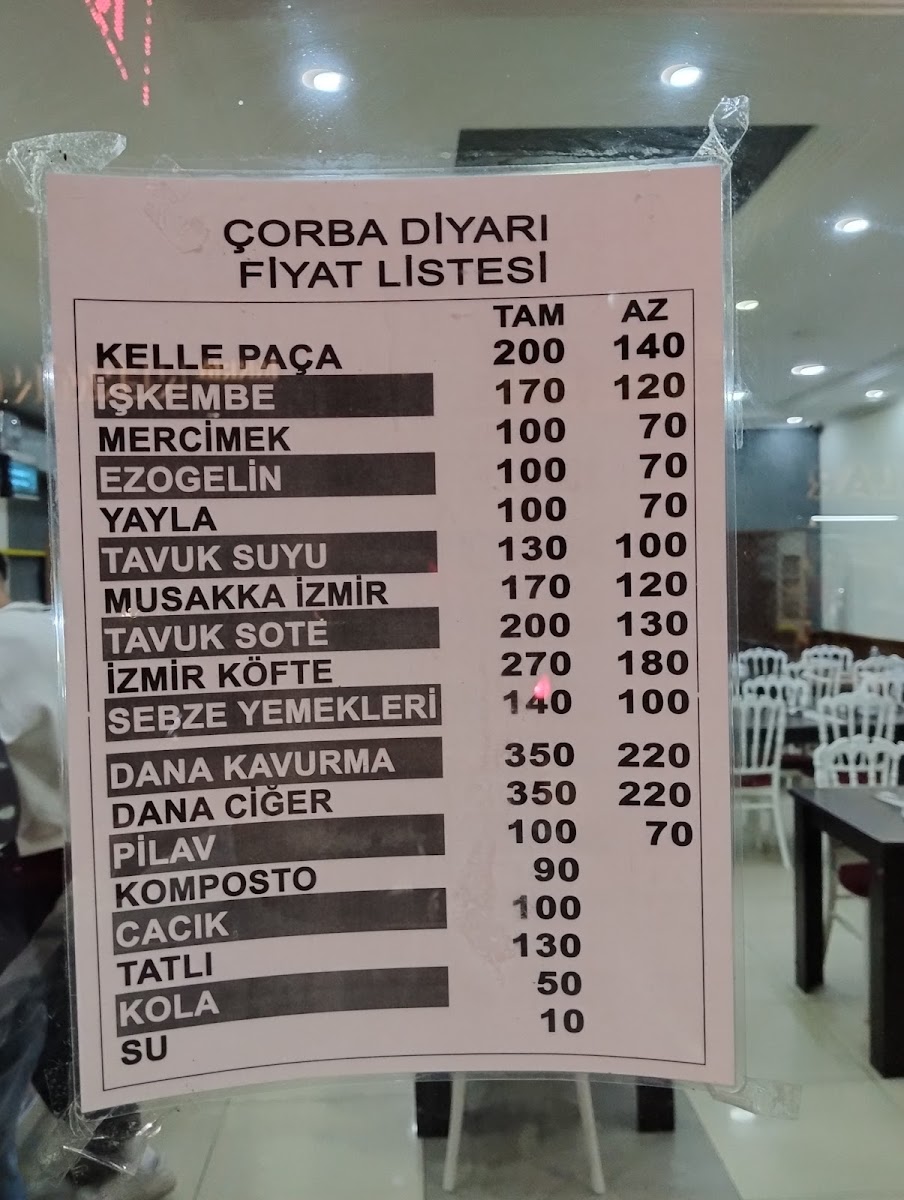 ÇORBA DİYARI
FİYAT LİSTESİ
TAM AZ
KELLE PAÇA 200 140
İŞKEMBE 170 120
MERCİMEK 100 70
EZOGELİN 100 70
YAYLA 100 70
TAVUK SUYU 130 100
MUSAKKA İZMİR 170 120
TAVUK SOTE 200 130
İZMİR KÖFTE 270 180
SEBZE YEMEKLERİ 140 100
DANA KAVURMA 350 220
DANA CİĞER 350 220
PİLAV 100 70
KOMPOSTO 90
CACIK 100
TATLI 130
KOLA 50
SU 10